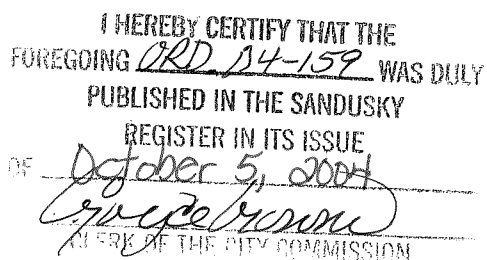 I HEREBY CERTIFY THAT THE
FOREGOING ORD 04-159 WAS DULY
PUBLISHED IN THE SANDUSKY
REGISTER IN ITS ISSUE
OF October 5, 2004
CLERK OF THE CITY COMMISSION